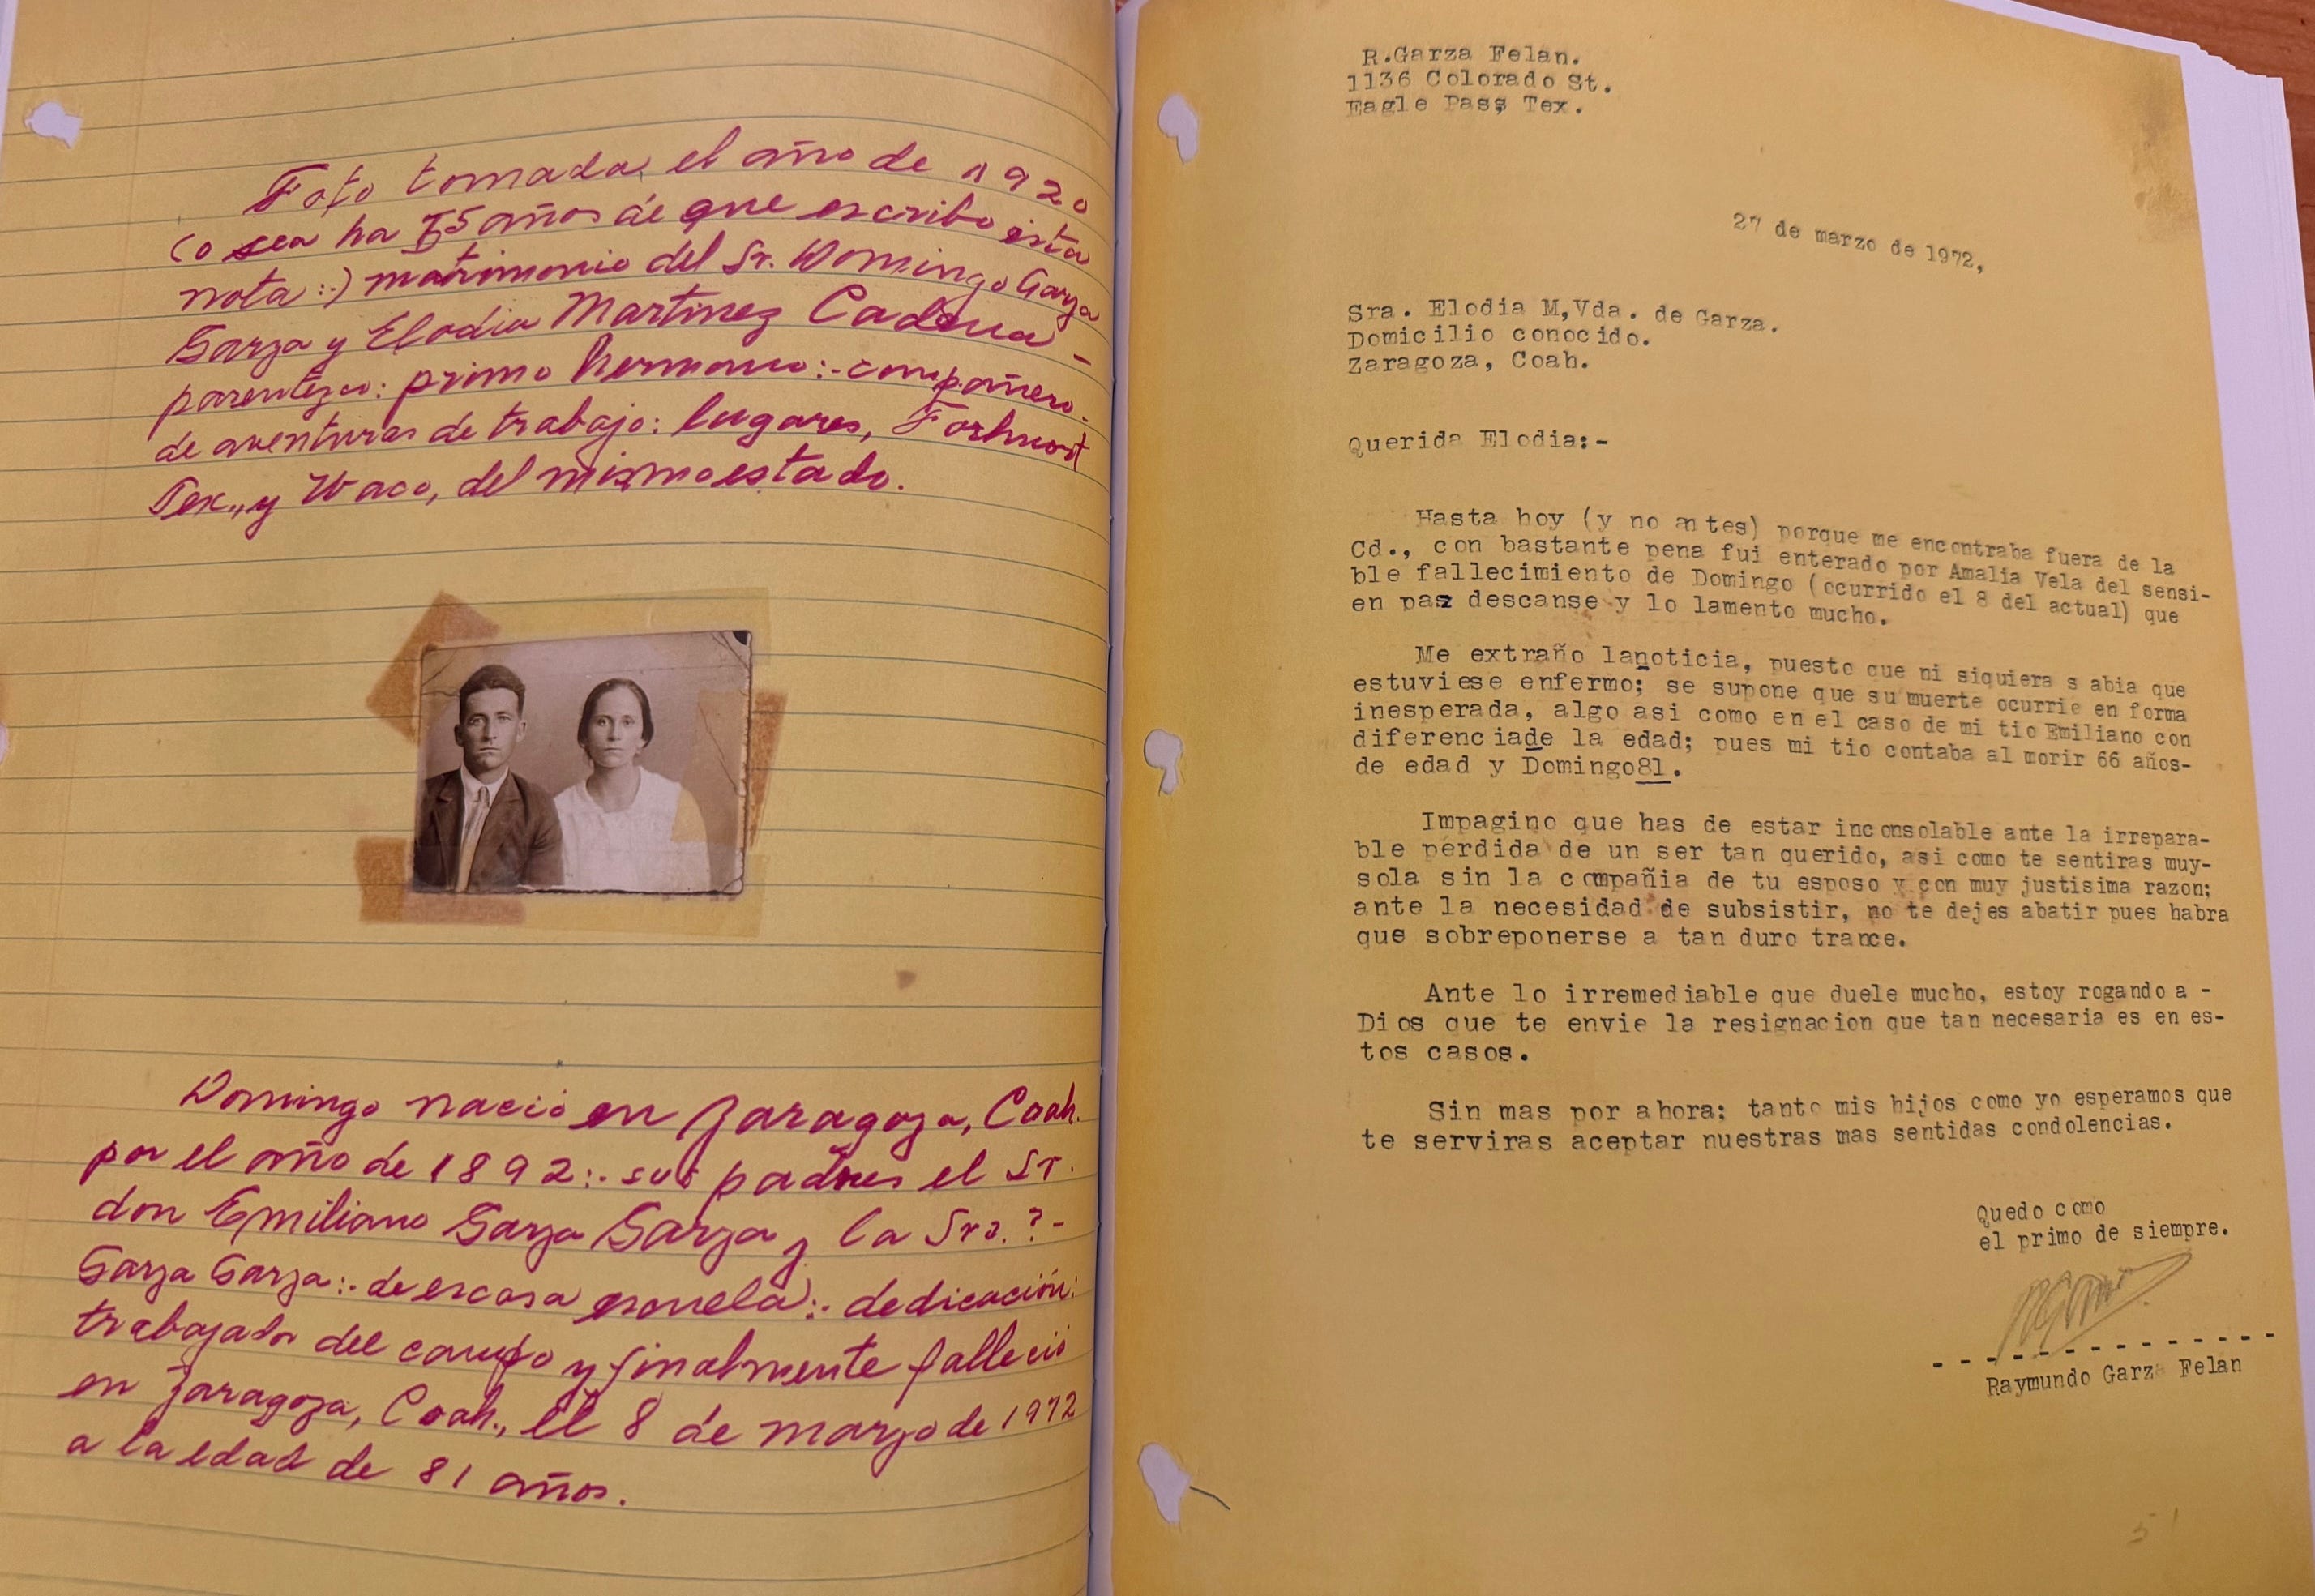 Foto tomada, el año de 1920
(o sea ha 55 años de que escribo esta
nota:.) matrimonio del Sr. Domingo Garza
Garza y Elodia Martinez Cadena -
parentezco: primo hermano:.-compañero.
de aventuras de trabajo: lugares, Forhwort
Tex., y Waco, del mismo estado.
Domingo nació en Zaragoza, Coah.
por el año de 1892:. sus padres el Sr.
don Emiliano Garza Garza y la Sra. ? -
Garza Garza:. de escasa escuela:. dedicación:
trabajador del campo y finalmente falleció
en Zaragoza, Coah., el 8 de marzo de 1972
a la edad de 81 años.
R.Garza Felan.
1136 Colorado St.
Eagle Pass, Tex.
27 de marzo de 1972,
Sra. Elodia M,Vda. de Garza.
Domicilio conocido.
Zaragoza, Coah.
Querida Elodia:-
Hasta hoy (y no antes) porque me encontraba fuera de la
Cd., con bastante pena fui enterado por Amalia Vela del sensi-
ble fallecimiento de Domingo (ocurrido el 8 del actual) que
en paz descanse y lo lamento mucho.
Me extraño lanoticia, puesto que ni siquiera s abia que
estuviese enfermo; se supone que su muerte ocurrie en forma
inesperada, algo asi como en el caso de mi tio Emiliano con
diferenciade la edad; pues mi tio contaba al morir 66 años-
de edad y Domingo81.
Impagino que has de estar inconsolable ante la irrepara-
ble pérdida de un ser tan querido, asi como te sentiras muy-
sola sin la compañia de tu esposo y con muy justisima razon;
ante la necesidad de subsistir, no te dejes abatir pues habra
que sobreponerse a tan duro trance.
Ante lo irremediable que duele mucho, estoy rogando a -
Dios que te envie la resignacion que tan necesaria es en es-
tos casos.
Sin mas por ahora; tanto mis hijos como yo esperamos que
te serviras aceptar nuestras mas sentidas condolencias.
Quedo como
el primo de siempre.
Raymundo Garza Felan